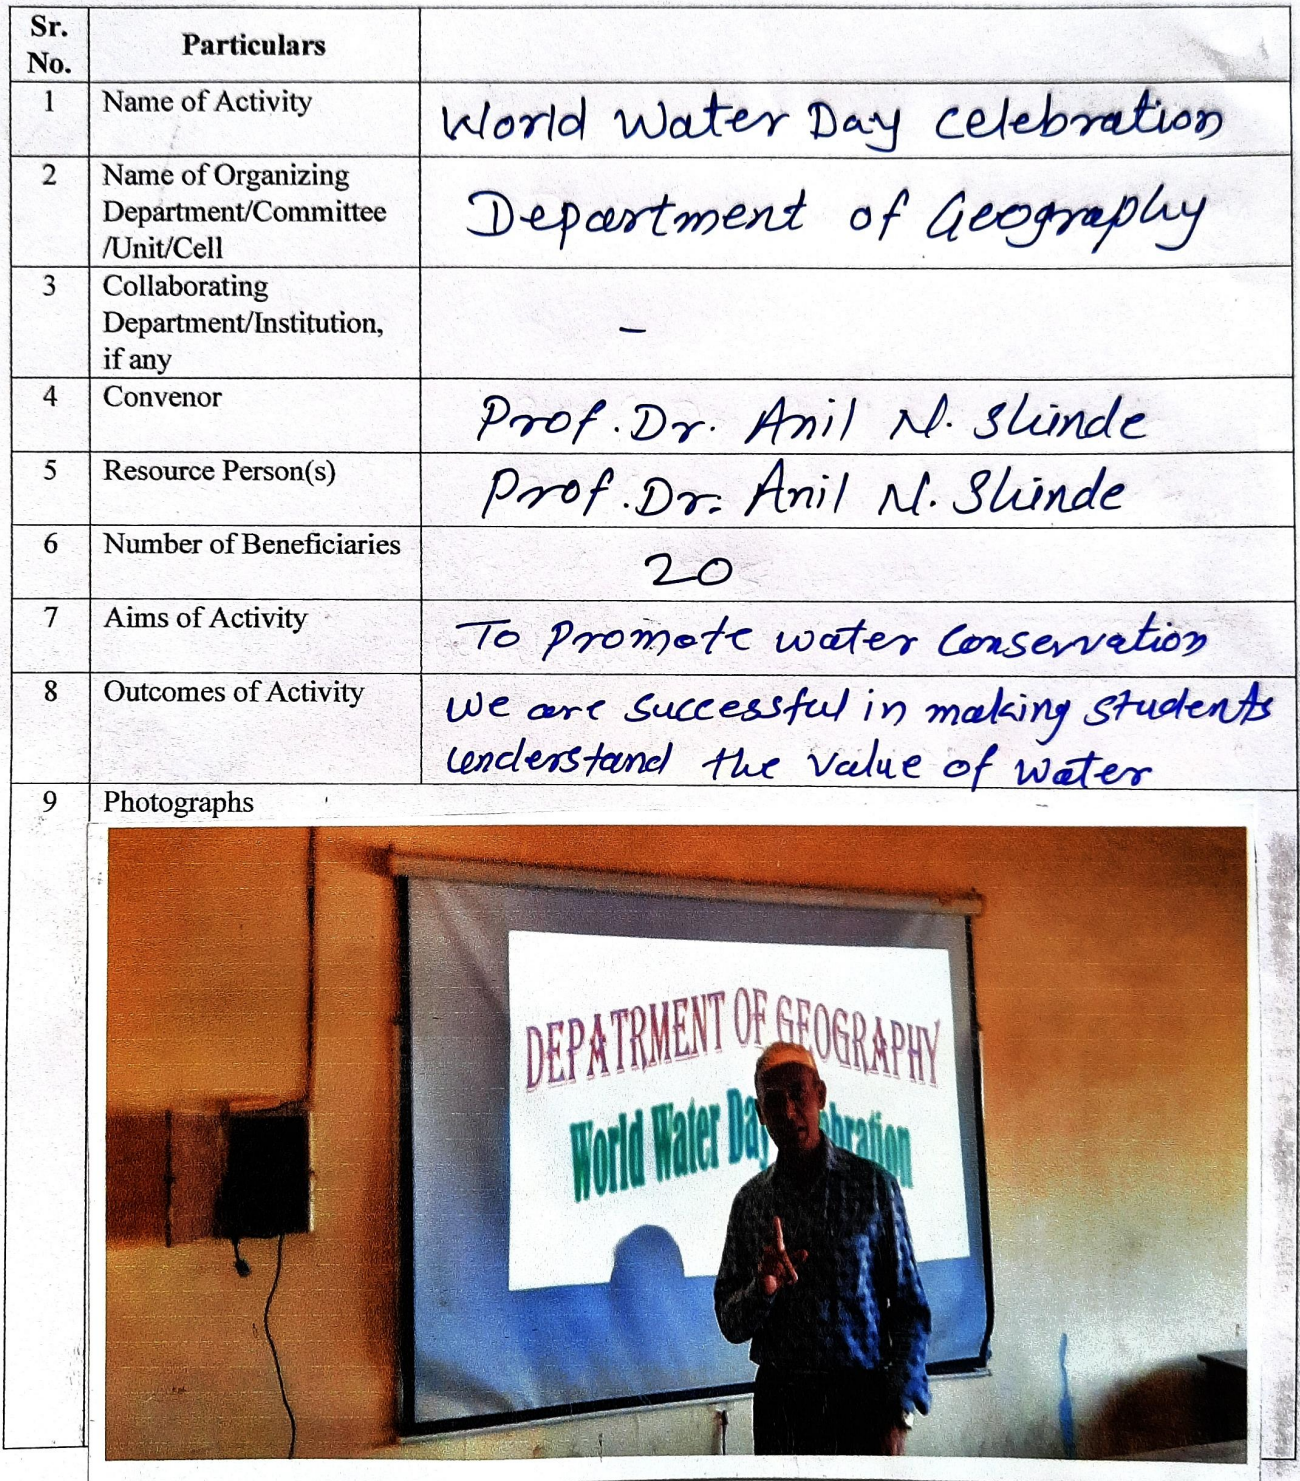 Sr. No. Particulars
1 Name of Activity World Water Day Celebration
2 Name of Organizing
Department/Committee
/Unit/Cell
Department of Geography
3 Collaborating
Department/Institution,
if any
-
4 Convenor Prof. Dr. Anil N. Shinde
5 Resource Person(s) Prof. Dr. Anil N. Shinde
6 Number of Beneficiaries 20
7 Aims of Activity To promote water Conservation
8 Outcomes of Activity We are Successful in making Students
understand the value of water
9 Photographs
DEPATRMENT OF GEOGRAPHY
World Water Day bration